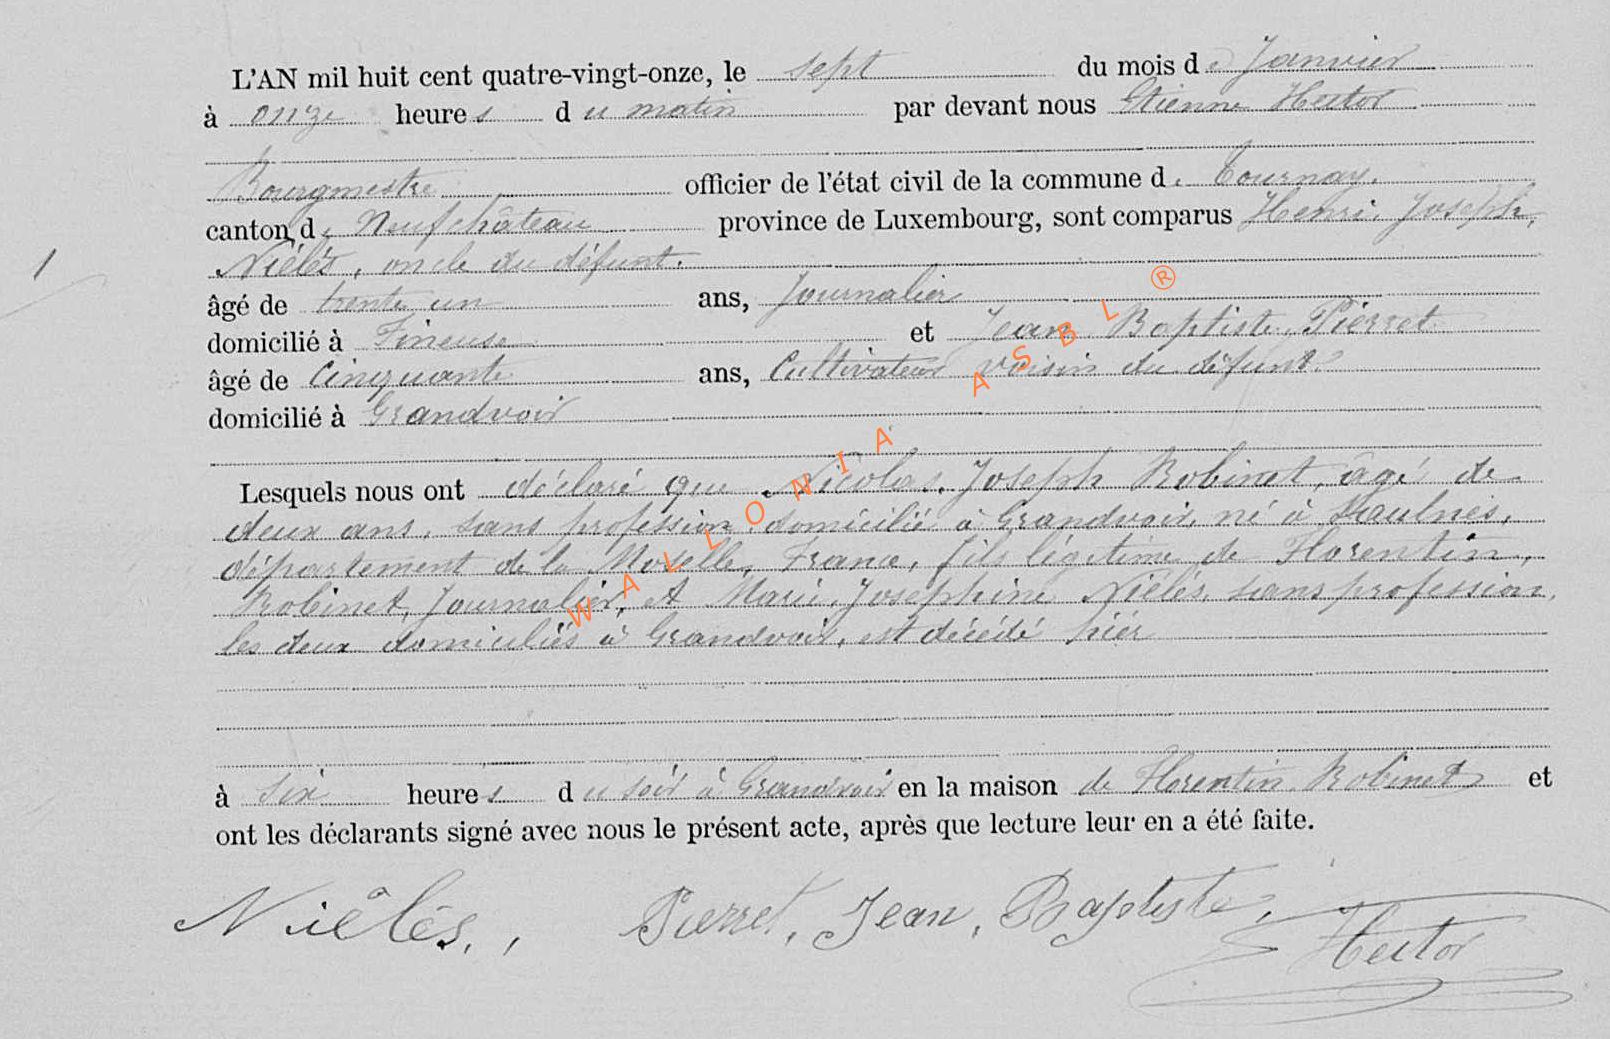 L'AN mil huit cent quatre-vingt-onze, le sept du mois de Janvier
à onze heures du matin par devant nous Etienne Hector
Bourgmestre officier de l'état civil de la commune de Tournay,
canton de Neufchâteau province de Luxembourg, sont comparus Henri, Joseph,
Niélès, oncle du défunt.
1
âgé de trente un ans, Journalier
domicilié à Fineuse et Jean, Baptiste, Pierret
âgé de Cinquante ans, Cultivateur voisin du défunt
domicilié à Grandvoir
Lesquels nous ont déclaré que Nicolas, Joseph Robinet, âgé de
deux ans, sans profession, domicilié à Grandvoir, né à Saulnes,
département de la Moselle, France, fils légitime de Florentin,
Robinet, Journalier, et Marie, Joséphine Niélès, sans profession,
les deux domiciliés à Grandvoir, est décédé hier
à six heures du soir à Grandvoir en la maison de Florentin Robinet et
ont les déclarants signé avec nous le présent acte, après que lecture leur en a été faite.
Niélès, Pierret, Jean, Baptiste, Hector
WALLONIA ASBL ®